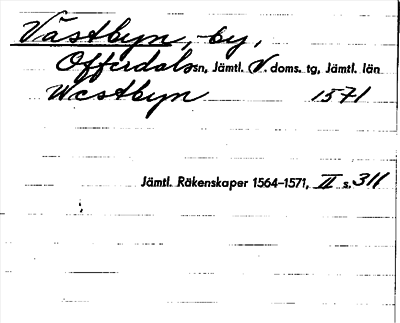 Västbyn, by,
Offerdals sn, Jämtl. V. doms. tg, Jämtl. län
Westbyn 1571
Jämtl. Räkenskaper 1564–1571, II s. 311